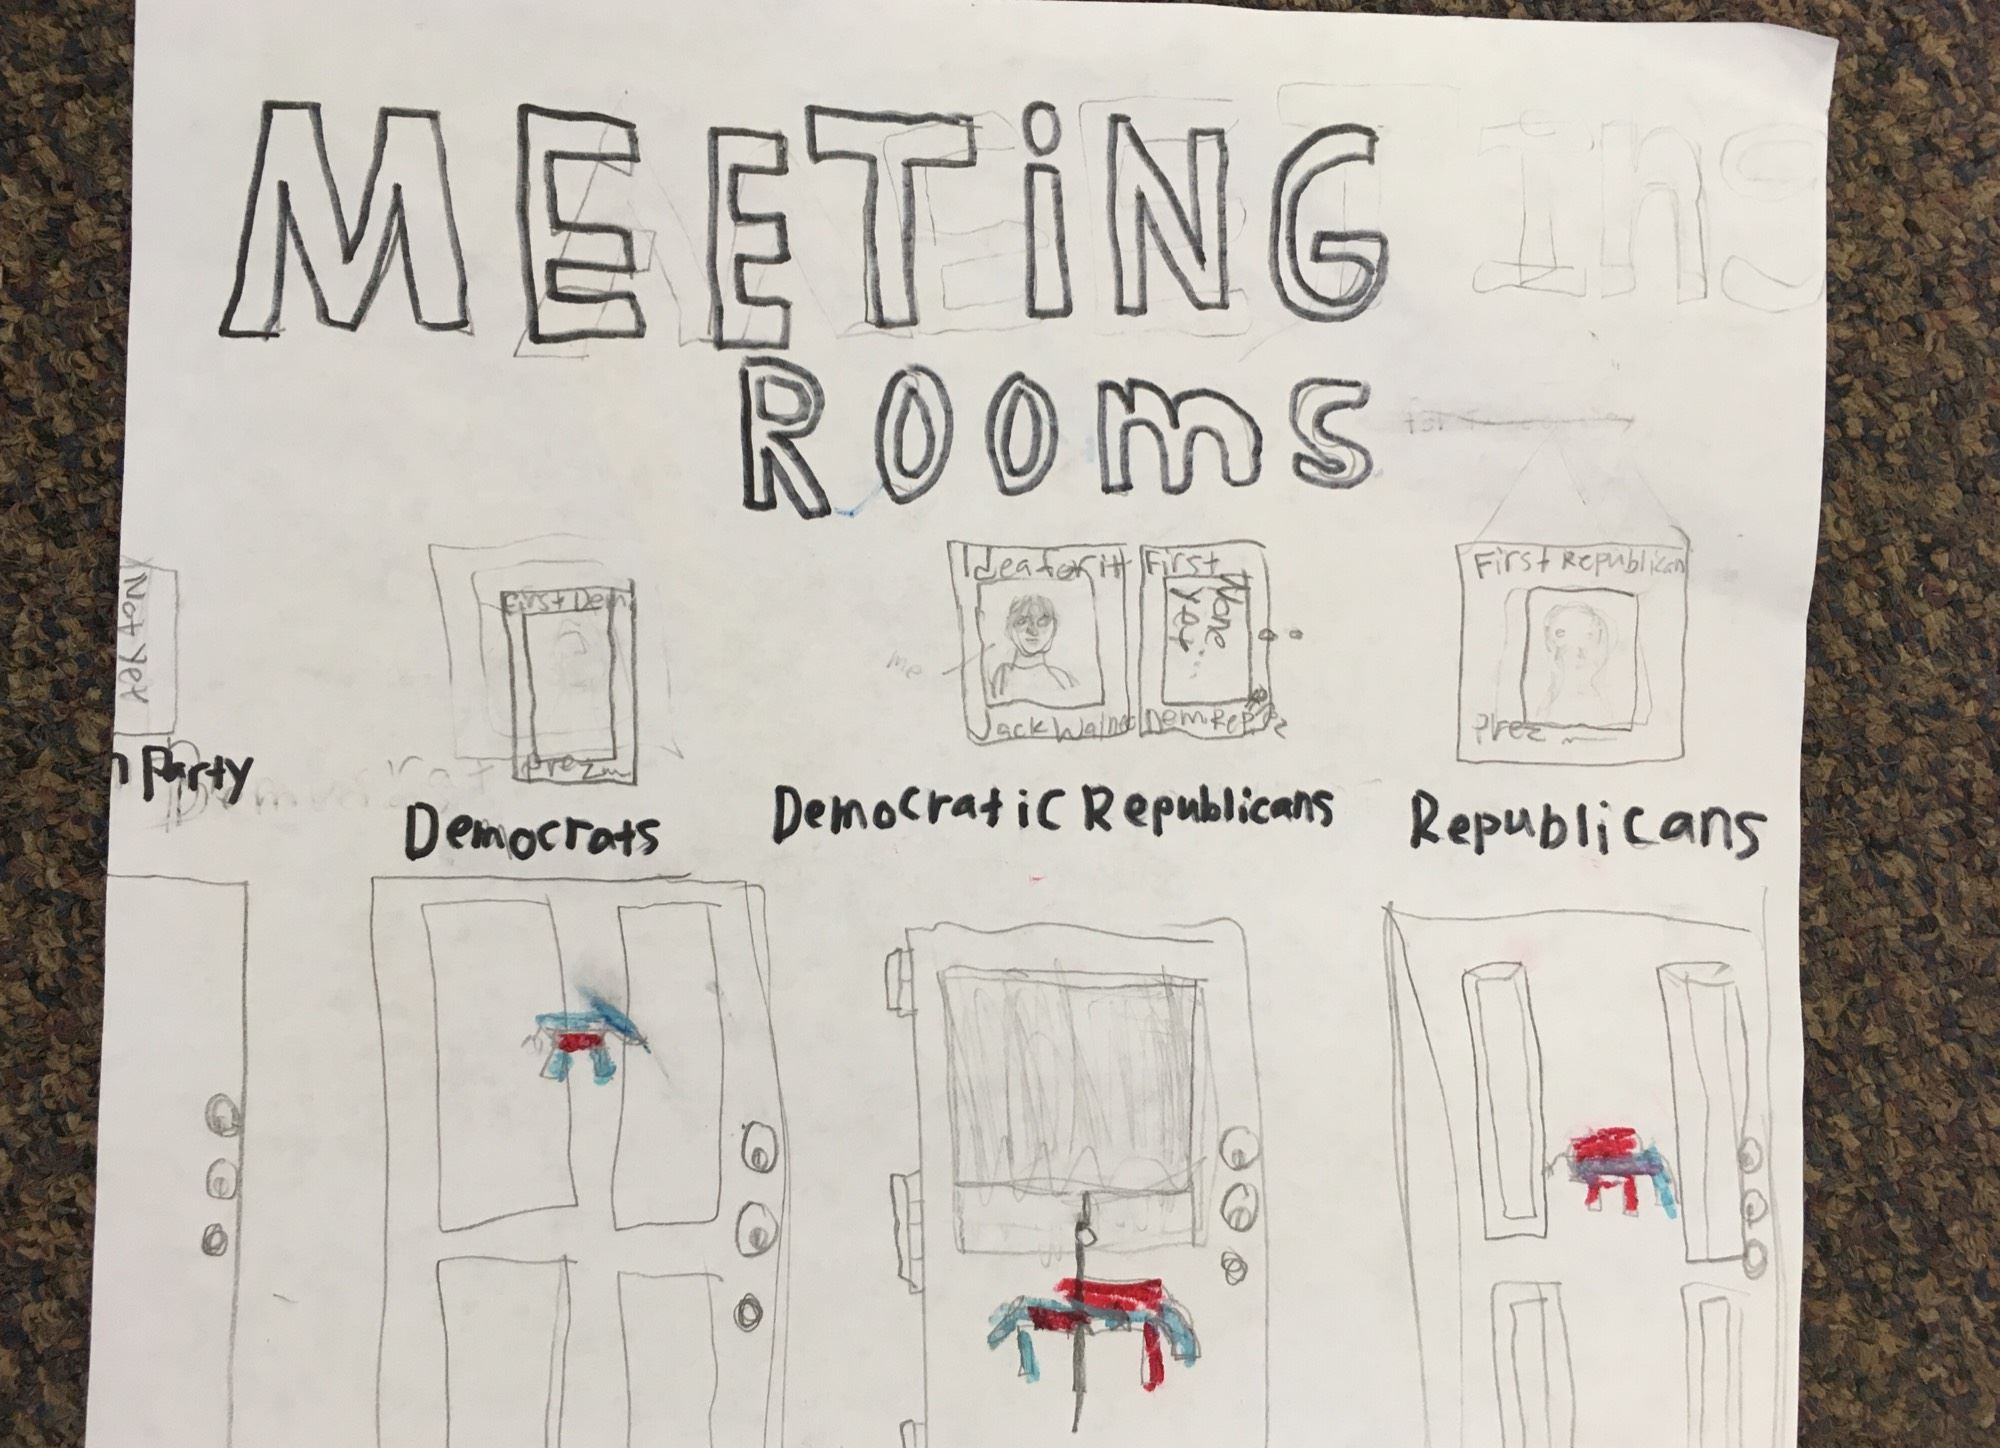 MEETiNG
Rooms
Not yet
Party
First Dem
Prez
Democrats
Idea for it
me
First
None
yet...
Dem. Rep.
Democratic Republicans
First Republican
Prez
Republicans